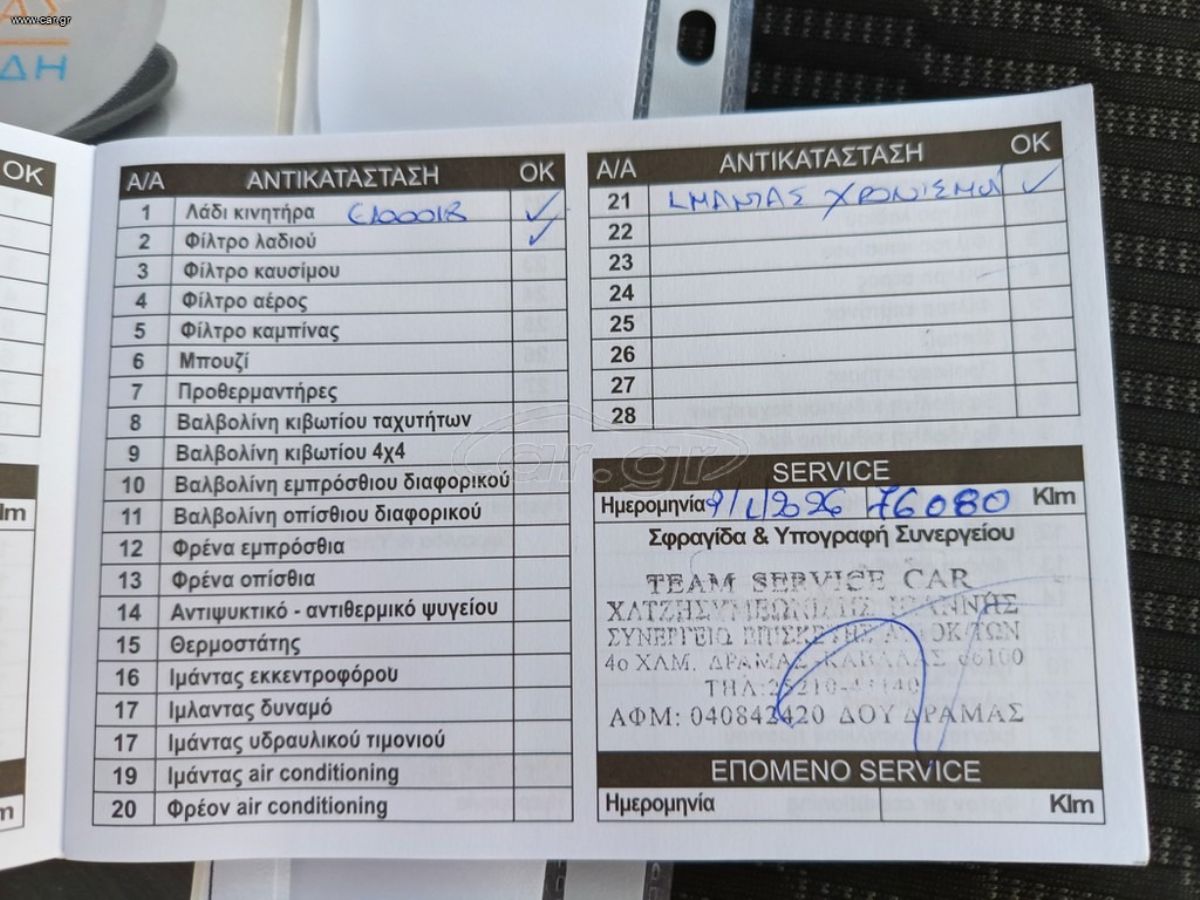 www.car.gr
ΔΗ
OK
A/A ΑΝΤΙΚΑΤΑΣΤΑΣΗ OK
1 Λάδι κινητήρα ✓
2 Φίλτρο λαδιού ✓
3 Φίλτρο καυσίμου
4 Φίλτρο αέρος
5 Φίλτρο καμπίνας
6 Μπουζί
7 Προθερμαντήρες
8 Βαλβολίνη κιβωτίου ταχυτήτων
9 Βαλβολίνη κιβωτίου 4χ4
10 Βαλβολίνη εμπρόσθιου διαφορικού
11 Βαλβολίνη οπίσθιου διαφορικού
12 Φρένα εμπρόσθια
13 Φρένα οπίσθια
14 Αντιψυκτικό - αντιθερμικό ψυγείου
15 Θερμοστάτης
16 Ιμάντας εκκεντροφόρου
17 Ιμλαντας δυναμό
17 Ιμάντας υδραυλικού τιμονιού
19 Ιμάντας air conditioning
20 Φρέον air conditioning
A/A ΑΝΤΙΚΑΤΑΣΤΑΣΗ OK
21 ΙΜΑΝΤΑΣ ΧΡΟΝΙΣΜΟΥ ✓
22
23
24
25
26
27
28
car.gr
SERVICE
Ημερομηνία 9/1/2026 76080 Klm
Σφραγίδα & Υπογραφή Συνεργείου
TEAM SERVICE CAR
ΧΑΤΖΗΣΥΜΕΩΝΙΔΗΣ ΙΩΑΝΝΗΣ
ΣΥΝΕΡΓΕΙΟ ΕΠΙΣΚΕΥΗΣ ΑΥΤΟΚ/ΤΩΝ
4ο ΧΛΜ. ΔΡΑΜΑΣ-ΚΑΒΑΛΑΣ 66100
ΤΗΛ:25210-41140
ΑΦΜ: 040842420 ΔΟΥ ΔΡΑΜΑΣ
ΕΠΟΜΕΝΟ SERVICE
Ημερομηνία Klm